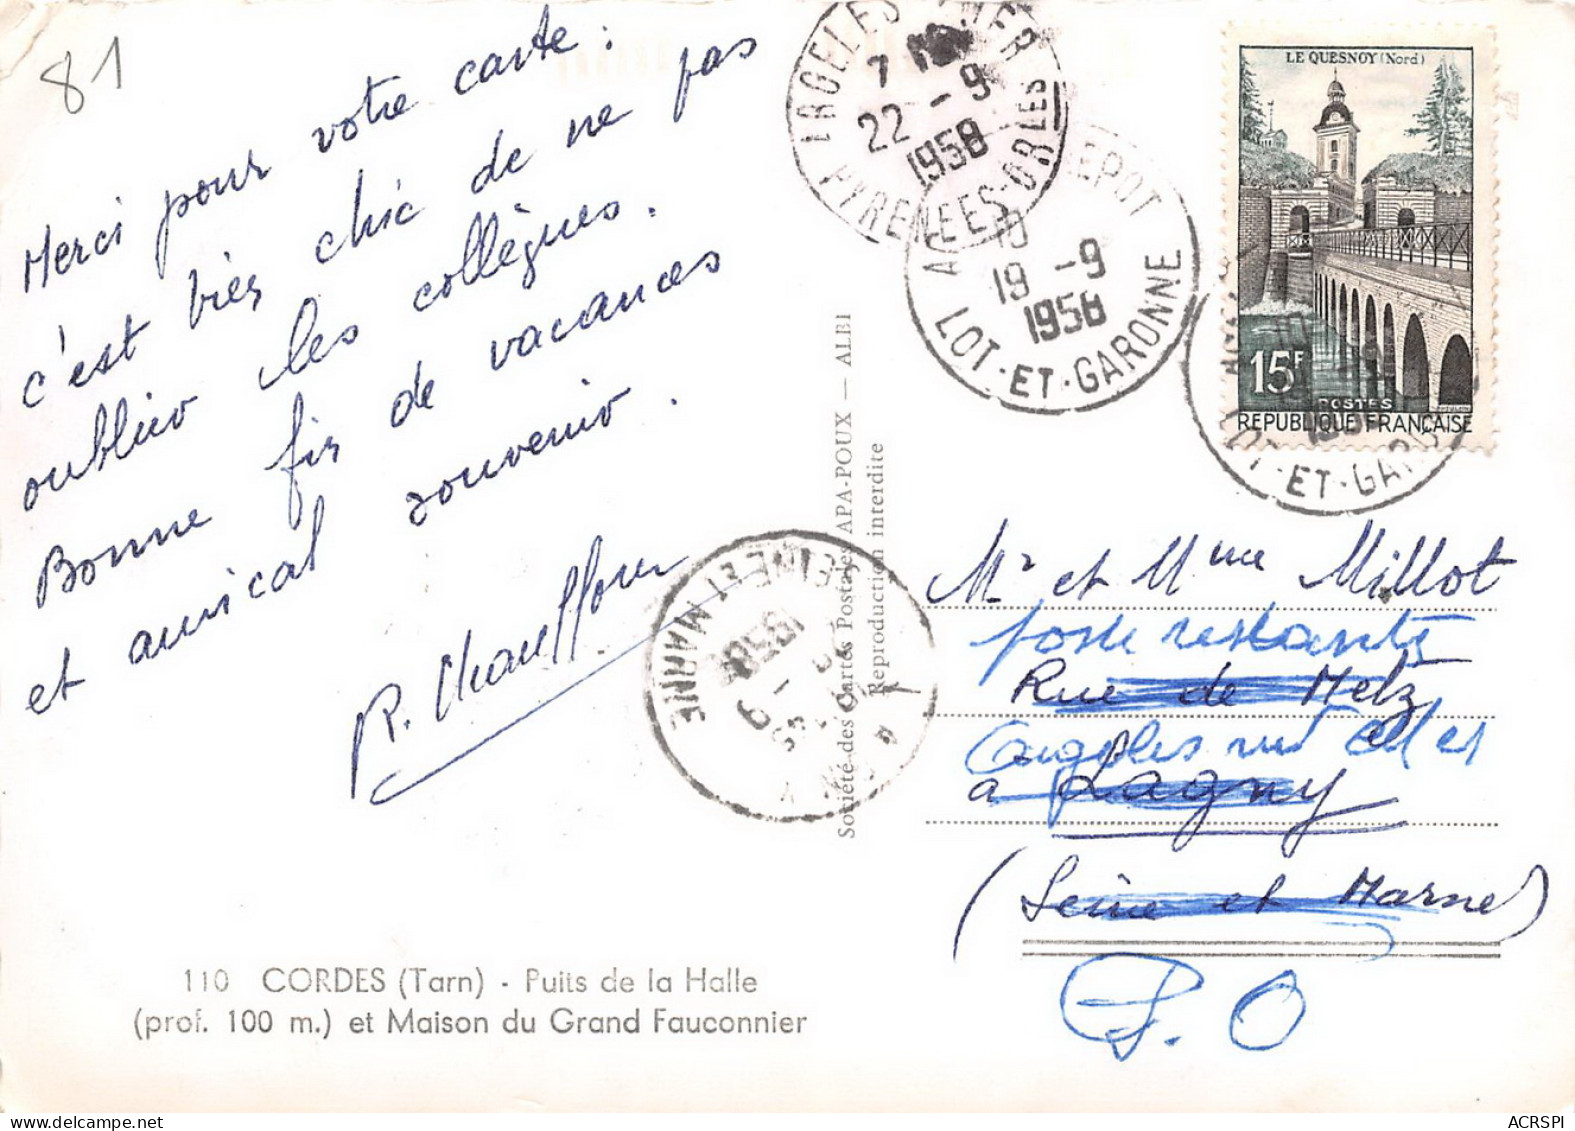 81
Merci pour votre carte :
c'est bien chic de ne pas
oublier les collègues.
Bonne fin de vacances
et amical souvenir.
R. Chauffour
110 CORDES (Tarn) - Puits de la Halle
(prof. 100 m.) et Maison du Grand Fauconnier
Société des Cartes Postales APA-POUX — ALBI
Reproduction interdite
ARGELES MER
7
22 -9
1958
PYRENEES-ORLES
DEPOT
10
19 -9
1958
LOT-ET-GARONNE
LE QUESNOY (Nord)
15F
POSTES
REPUBLIQUE FRANÇAISE
LOT-ET-GARO
LAGNY
-9
1958
SEINE ET MARNE
Mr et Mme Millot
poste restante
Rue de Metz
Argeles
a Lagny
(Seine et Marne)
P.O
ACRSPI